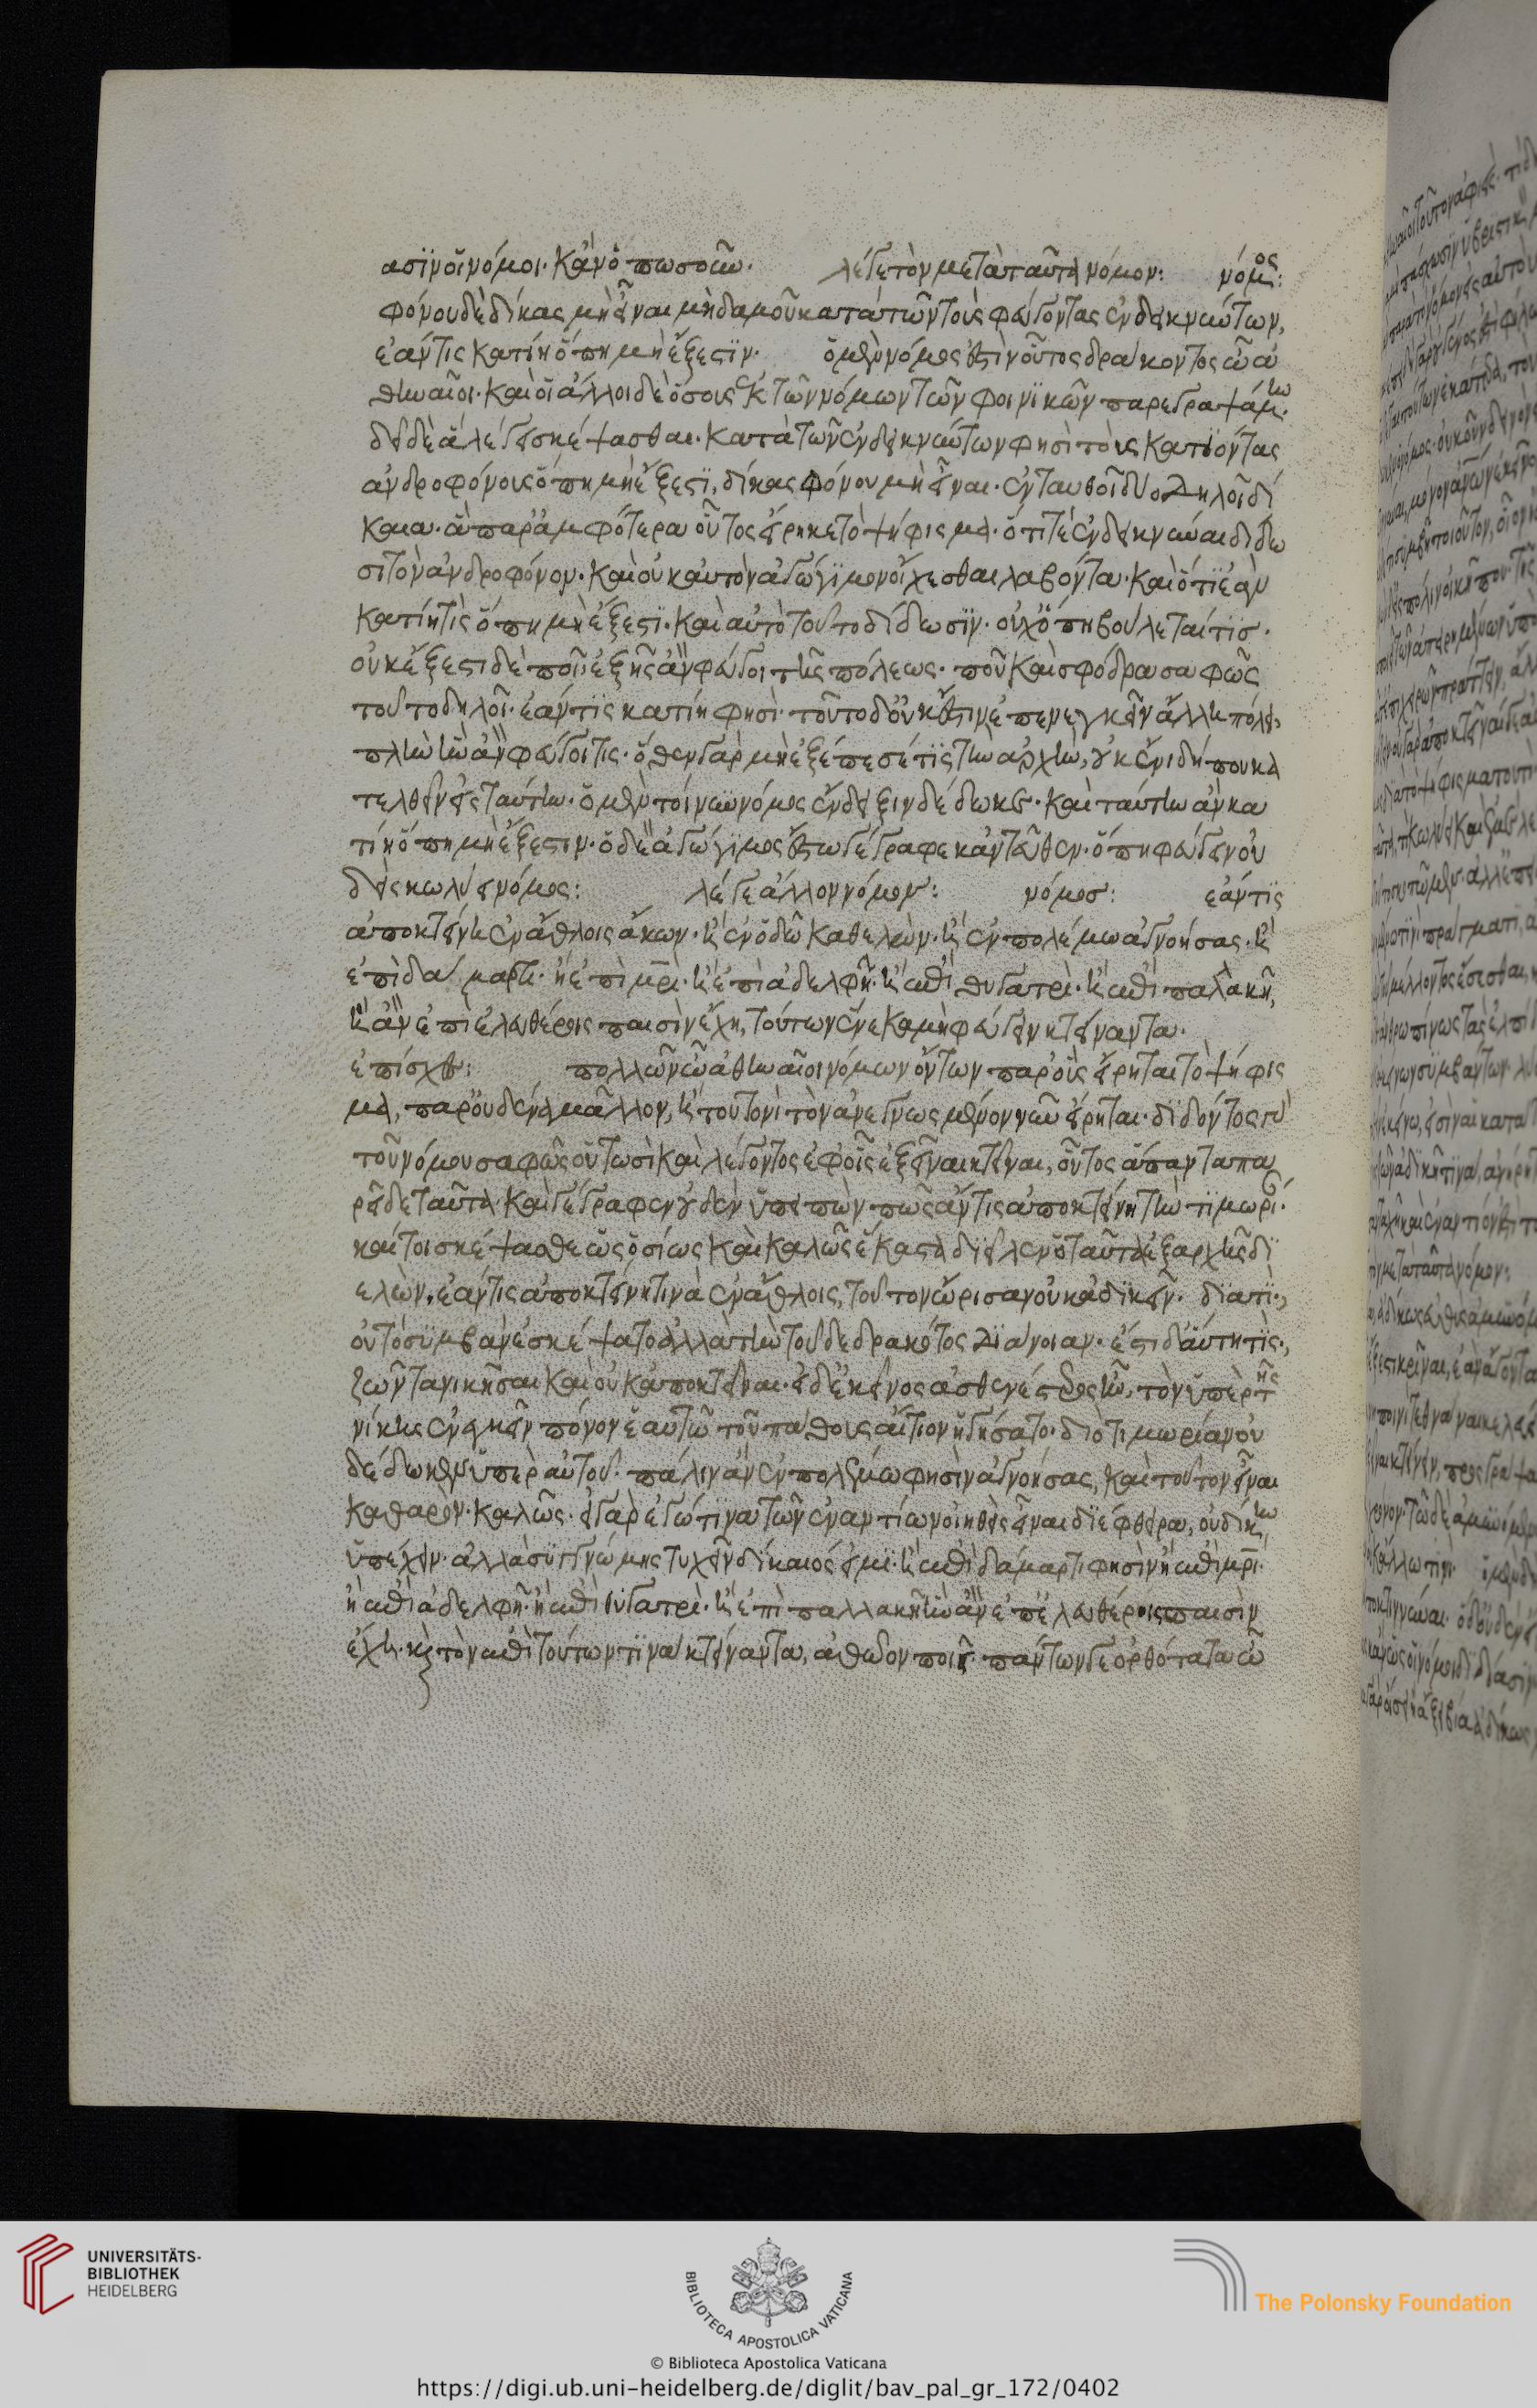 ασϊν οἱ νόμοι. κἂν ὁπωσοῦν. λέγε τὸν μετὰ ταῦτα νόμον: νόμος:
φόνου δὲ δίκας μὴ εἶναι μηδαμοῦ κατὰ τῶν τοὺς φεύγοντας ἐνδεικνύντων,
ἐάν τις κατίη ὅπη μὴ ἔξεστϊν. ὁ μὲν νόμος ἐστὶν οὗτος δράκοντος ὦ ἀ
θηναῖοι. καὶ οἱ ἄλλοι δὲ ὅσους ἐκ τῶν νόμων τῶν φοινϊκῶν παρεγραψάμην.
δεῖ δὲ ἃ λέγει σκέψασθαι. κατὰ τῶν ἐνδεικνύντων φησὶ τοὺς κατϊόντας
ἀνδροφόνους ὅπη μὴ ἔξεστϊ, δίκας φόνου μὴ εἶναι. ἐνταυθοῖ δύο δηλοῖ δί
καια. ἃ παρ' ἀμφότερα οὗτος εἴρηκε τὸ ψήφισμα. ὅτι τὲ ἐνδεικνύναι δίδω
σι τὸν ἀνδροφόνον. καὶ οὐκ αὐτὸν ἀγώγϊμον οἴχεσθαι λαβόντα. καὶ ὅτϊ ἐὰν
κατίη τὶς ὅπη μὴ ἔξεστϊ. καὶ αὐτὸ τοῦτο δίδωσϊν. οὐχ ὅπη βούλεταί τισ.
οὐκ ἔξεστι δὲ ποῖ; ἐξ ἧς ἂν φεύγοι τῆς πόλεως. ποῦ καὶ σφόδρα σαφῶς
τοῦτο δηλοῖ. ἐάν τις κατίη φησὶ. τοῦτο δ' οὐκ ἔστιν ἐπενεγκεῖν ἄλλη πόλει,
πλὴν ἣν ἂν φεύγοι τις. ὅθεν γὰρ μὴ ἐξέπεσέ τϊς τὴν ἀρχὴν, οὐκ ἔνι δή που κα
τελθεῖν εἰς ταύτην. ὁ μὲν τοίνυν νόμος ἔνδειξιν δέδωκε. καὶ ταύτην ἂν κα
τίη ὅπη μὴ ἔξεστιν. ὁ δὲ ἀγώγϊμος ἔστω γέγραφε κἀντεῦθεν. ὅπη φεύγειν οὐ
δεὶς κωλύει νόμος: λέγε ἄλλον νόμον: νόμοσ: ἐάν τϊς
ἀποκτείνη ἐν ἄθλοις ἄκων. ἢ ἐν ὁδῶ καθελὼν. ἢ ἐν πολέμω ἀγνοήσας. ἢ
ἐπὶ δάμαρτι. ἢ ἐπὶ μρὶ. ἢ ἐπὶ ἀδελφῆ. ἢ ἐπὶ θυγατρὶ. ἢ ἐπὶ παλλακῆ,
ἣν ἂν ἐπὶ ἐλευθέροις παισὶν ἔχη, τούτων ἕνεκα μὴ φεύγειν κτείναντα.
ἐπίσχες: πολλῶν ὦ ἀθηναῖοι νόμων ὄντων παρ' οὓς εἴρηται τὸ ψήφισ
μα, παρ' οὐδένα μᾶλλον, ἢ τουτονὶ τὸν ἀνεγνωσμένον νῦν εἴρηται. δϊδόντος γὰρ
τοῦ νόμου σαφῶς οὑτωσὶ καὶ λέγοντος ἐφ' οἷς ἐξεῖναι κτεῖναι, οὗτος ἅπαντα πα
ρεῖδε ταῦτα. καὶ γέγραφεν οὐδὲν ὑπειπὼν πῶς ἄν τις ἀποκτείνη τὴν τϊμωρί.
καί τοι σκέψασθε ὡς ὁσίως καὶ καλῶς ἕκαστα διεῖλεν ὁ ταῦτα ἐξ ἀρχῆς δϊ
ελών. ἐάν τις ἀποκτείνη τινὰ ἐν ἄθλοις, τοῦτον ὥρισαν οὐκ ἀδϊκεῖν. διατι;
οὐ τὸ συμβὰν ἐσκέψατο ἀλλὰ τὴν τοῦ δεδρακότος δϊάνοιαν. ἔστι δ' αὕτη τὶς;
ζῶντα νικῆσαι καὶ οὐκ ἀποκτεῖναι. εἰ δ' ἐκεῖνος ἀσθενέστερος ἦν, τὸν ὑπὲρ τῆς
νίκης ἐνεγκεῖν πόνον ἑαυτῶ τοῦ πάθους αἴτιον ἡγήσατο. διὸ τιμωρίαν οὐ
δέδωκεν ὑπὲρ αὐτοῦ. πάλιν ἂν ἐν πολέμω φησὶν ἀγνοήσας, καὶ τοῦτον εἶναι
καθαρόν. καλῶς. εἰ γὰρ ἐγώ τϊνα τῶν ἐναντίων οἰηθεὶς εἶναι διέφθειρα, οὐ δίκην
ὑπέχειν. ἀλλὰ συγγνώμης τυχεῖν δίκαιός εἰμϊ. ἢ ἐπὶ δάμαρτι φησὶν ἢ ἐπὶ μρὶ.
ἢ ἐπὶ ἀδελφῆ. ἢ ἐπὶ θυγατρὶ. ἢ ἐπὶ παλλακῆ ἣν ἂν ἐπ' ἐλευθέροις παισὶν
ἔχη. καὶ τὸν ἐπὶ τούτων τϊνὰ κτείναντα, ἀθῶον ποιεῖ. πάντων γε ὀρθότατα ὦ
UNIVERSITÄTS-
BIBLIOTHEK
HEIDELBERG
BIBLIOTECA APOSTOLICA VATICANA
The Polonsky Foundation
© Biblioteca Apostolica Vaticana
https://digi.ub.uni-heidelberg.de/diglit/bav_pal_gr_172/0402